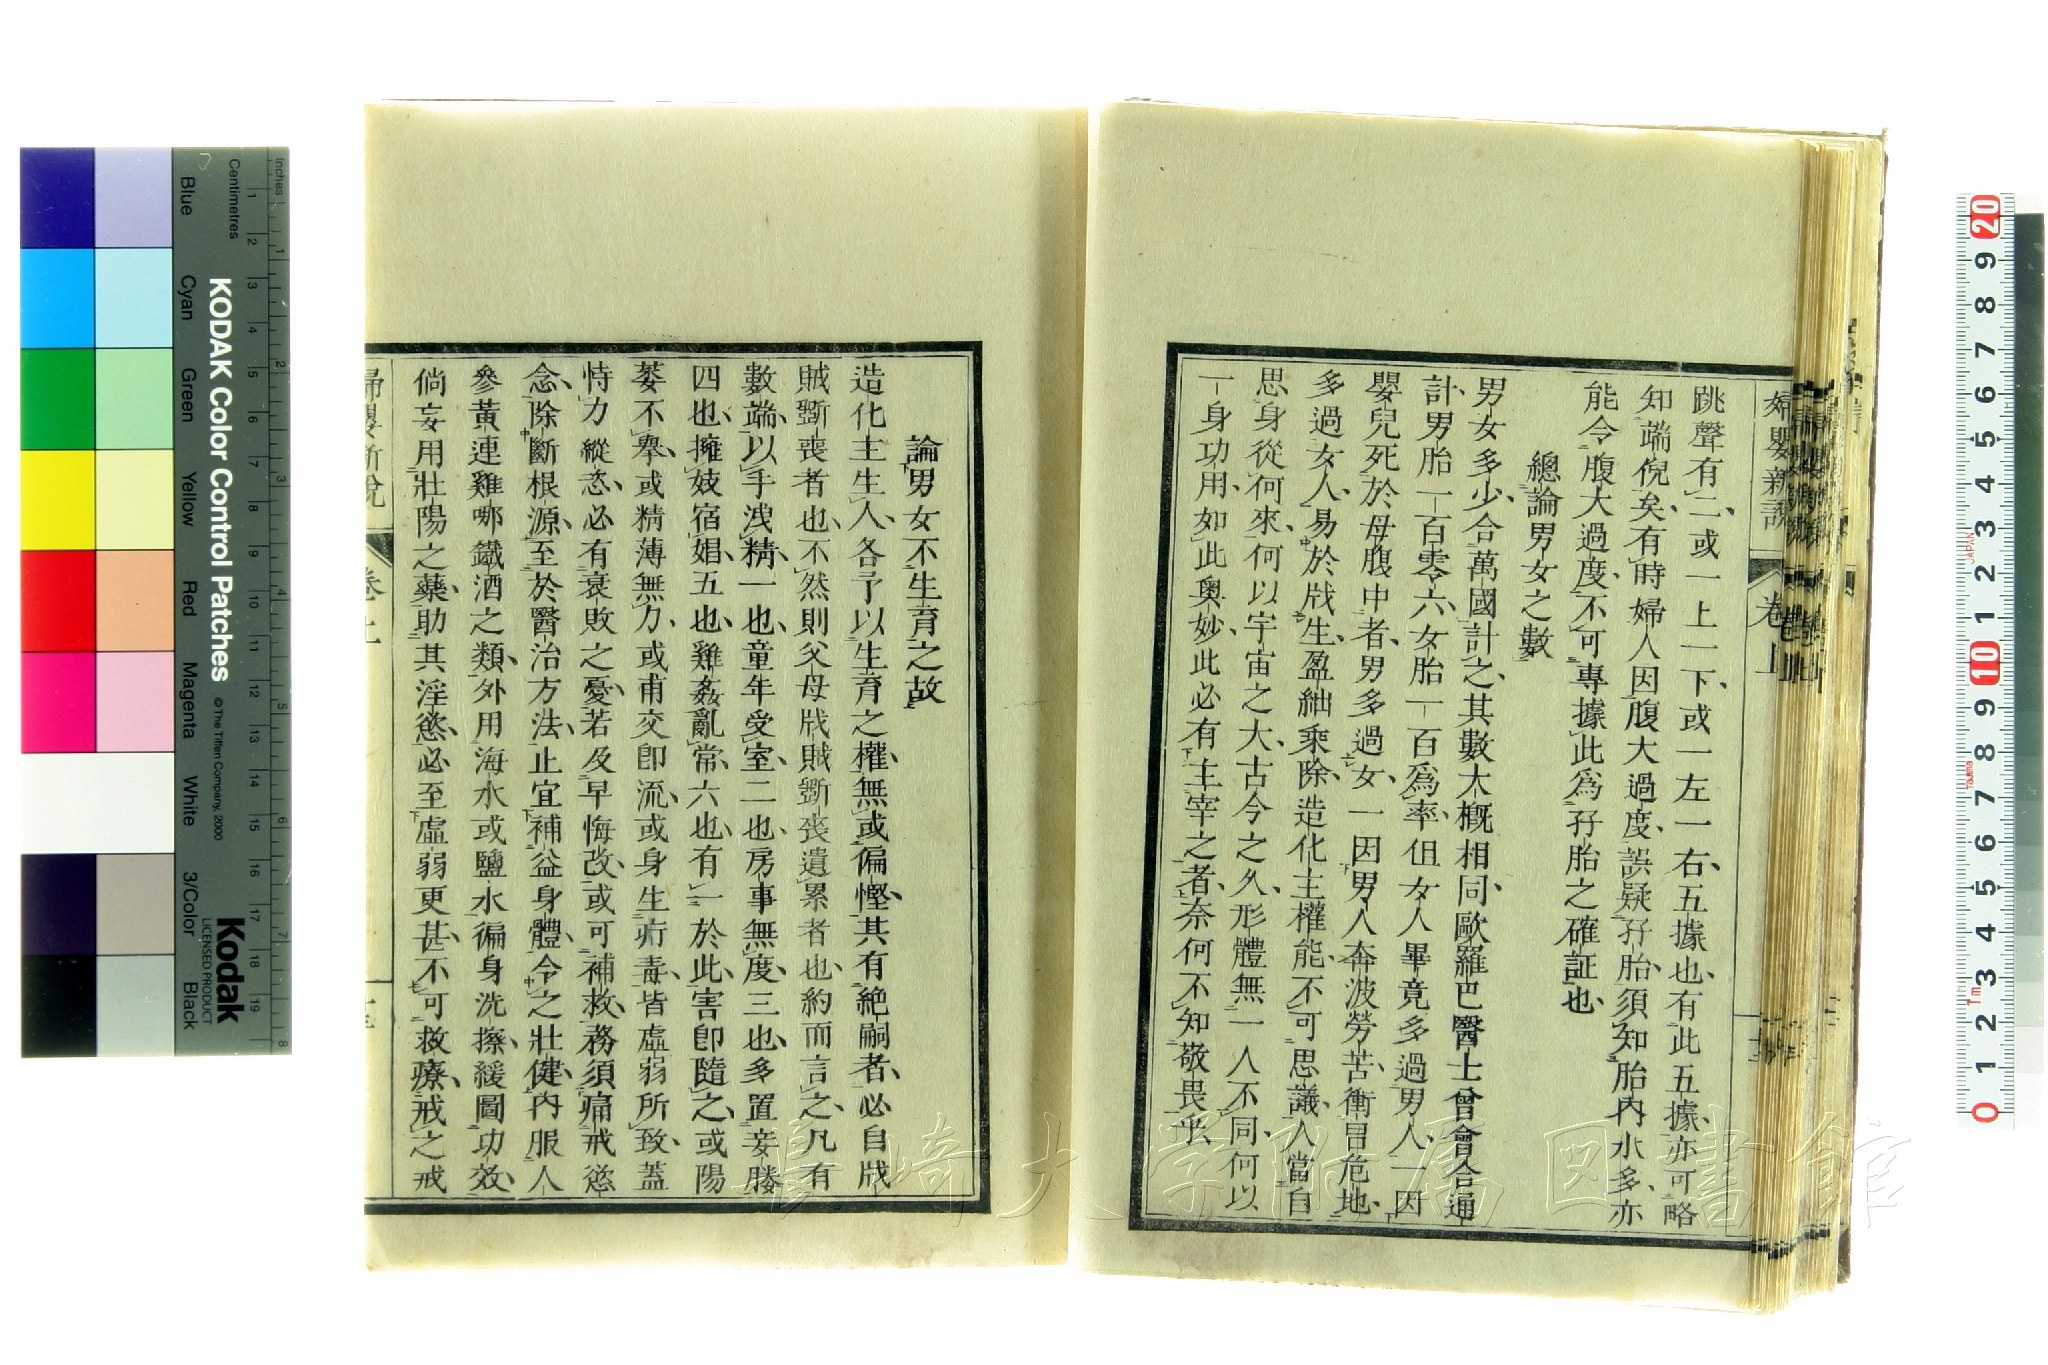 婦嬰新説
卷上
跳聲有二、或一上一下、或一左一右、五據也、有此五據、亦可略
知端倪矣、有時婦人因腹大過度、誤疑孕胎、須知胎內水多、亦
能令腹大過度、不可專據此爲孕胎之確証也、
總論男女之數
男女多少、合萬國計之、其數大概相同、歐羅巴醫士曾會合通
計、男胎一百零六、女胎一百爲率、但女人畢竟多過男人、一因
嬰兒死於母腹中者、男多過女、一因男人奔波勞苦、衝冒危地、
多過女人、易於戕生、盈絀乘除、造化主權能、不可思議、人當自
思身從何來、何以宇宙之大、古今之久、形體無一人不同、何以
一身功用、如此奧妙、此必有主宰之者、奈何不知敬畏乎、
論男女不生育之故
造化主生人、各予以生育之權、無或偏慳、其有絶嗣者、必自戕
賊斲喪者也、不然則父母戕賊斲喪遺累者也、約而言之、凡有
數端、以手洩精一也、童年受室二也、房事無度三也、多置妾媵
四也、擁妓宿娼五也、雞姦亂常六也、有一於此、害卽隨之、或陽
萎不擧、或精薄無力、或甫交卽流、或身生疳毒、皆虛弱所致、蓋
恃力縱恣、必有衰敗之憂、若及早悔改、或可補救、務須痛戒慾
念、除斷根源、至於醫治方法、止宜補益身體、令之壯健、內服人
參黃連雞哪鐵酒之類、外用海水或鹽水徧身洗擦、緩圖功效、
倘妄用壯陽之藥、助其淫慾、必至虛弱更甚、不可救療、戒之戒
婦嬰新說
卷上
長崎大学附属図書館
KODAK Color Control Patches
© The Tiffen Company, 2000
Kodak
LICENSED PRODUCT
Inches
Centimetres
Blue
Cyan
Green
Yellow
Red
Magenta
White
3/Color
Black
1 2 3 4 5 6 7 8 9 10 11 12 13 14 15 16 17 18 19
1 2 3 4 5 6 7 8
20 9 8 7 6 5 4 3 2 1 10 9 8 7 6 5 4 3 2 1 0
JAPAN